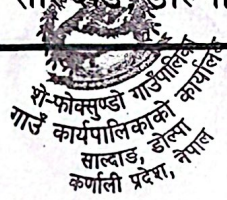 शे-फोक्सुण्डो गाउँपालिका
गाउँ कार्यपालिकाको कार्यालय
साल्दाङ, डोल्पा
कर्णाली प्रदेश, नेपाल